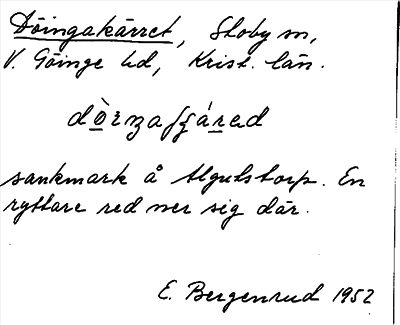 Döingakärret, Stoby sn,
V. Göinge hd, Krist. län.
sankmark å Algutstorp. En
ryttare red ner sig där.
E. Bergenrud 1952